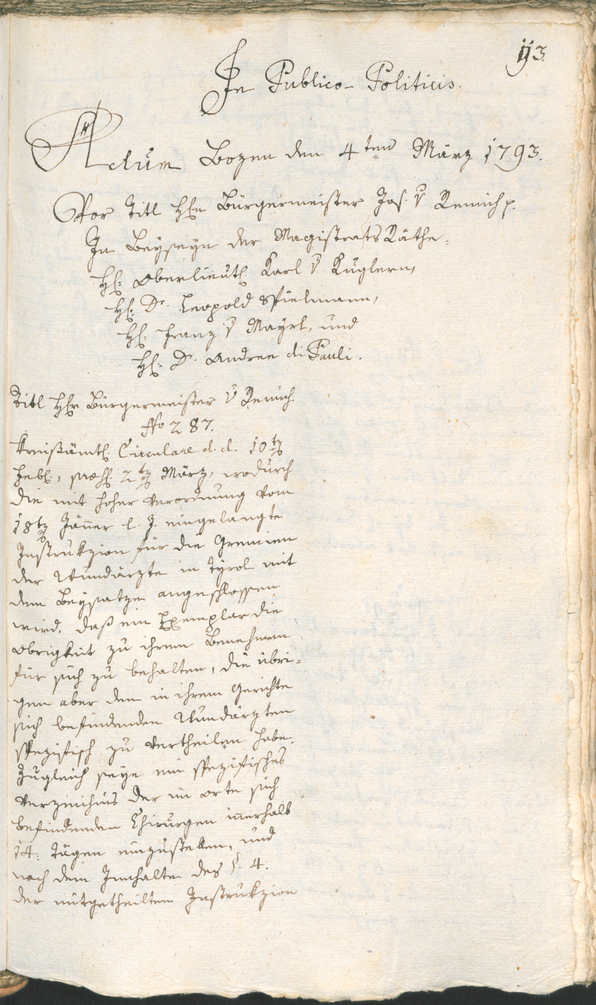 113.
In Publico-Politicis.
Actum Bozen den 4ten März 1793.
Vor Titl Hrn Bürgermeister Jos. v Remich p.
In Beyseyn der Magistrats Räthe:
Hr. Oberlieut. Karl v Kuglern,
Hr. Dr. Leopold Spielmann,
Hr. Franz v Mayrl, und
Hr. Dr. Andree di Pauli.
Titl Hr Bürgermeister v Remich
No 287.
Kreisämtl. Circulare d. d. 10t
Feb., praes. 2t März, wodurch
die mit hoher Verordnung vom
18t Jäner l. J. eingelangte
Instrukzion für die Gremien
der Wundärzte in Tyrol mit
dem Beysatze angeschlossen
wird, daß ein Exemplar die
Obrigkeit zu ihrem Benehmen
für sich zu behalten, die übri-
gen aber den in ihrem Gerichte
sich befindenden Wundärzten
spezifisch zu vertheilen habe.
Zugleich seye ein spezifisches
Verzeichnis der im Orte sich
befindenden Chirurgen innerhalb
14. Tägen einzustellen, und
nach dem Innhalte des §. 4.
der mitgetheilten Instrukzion